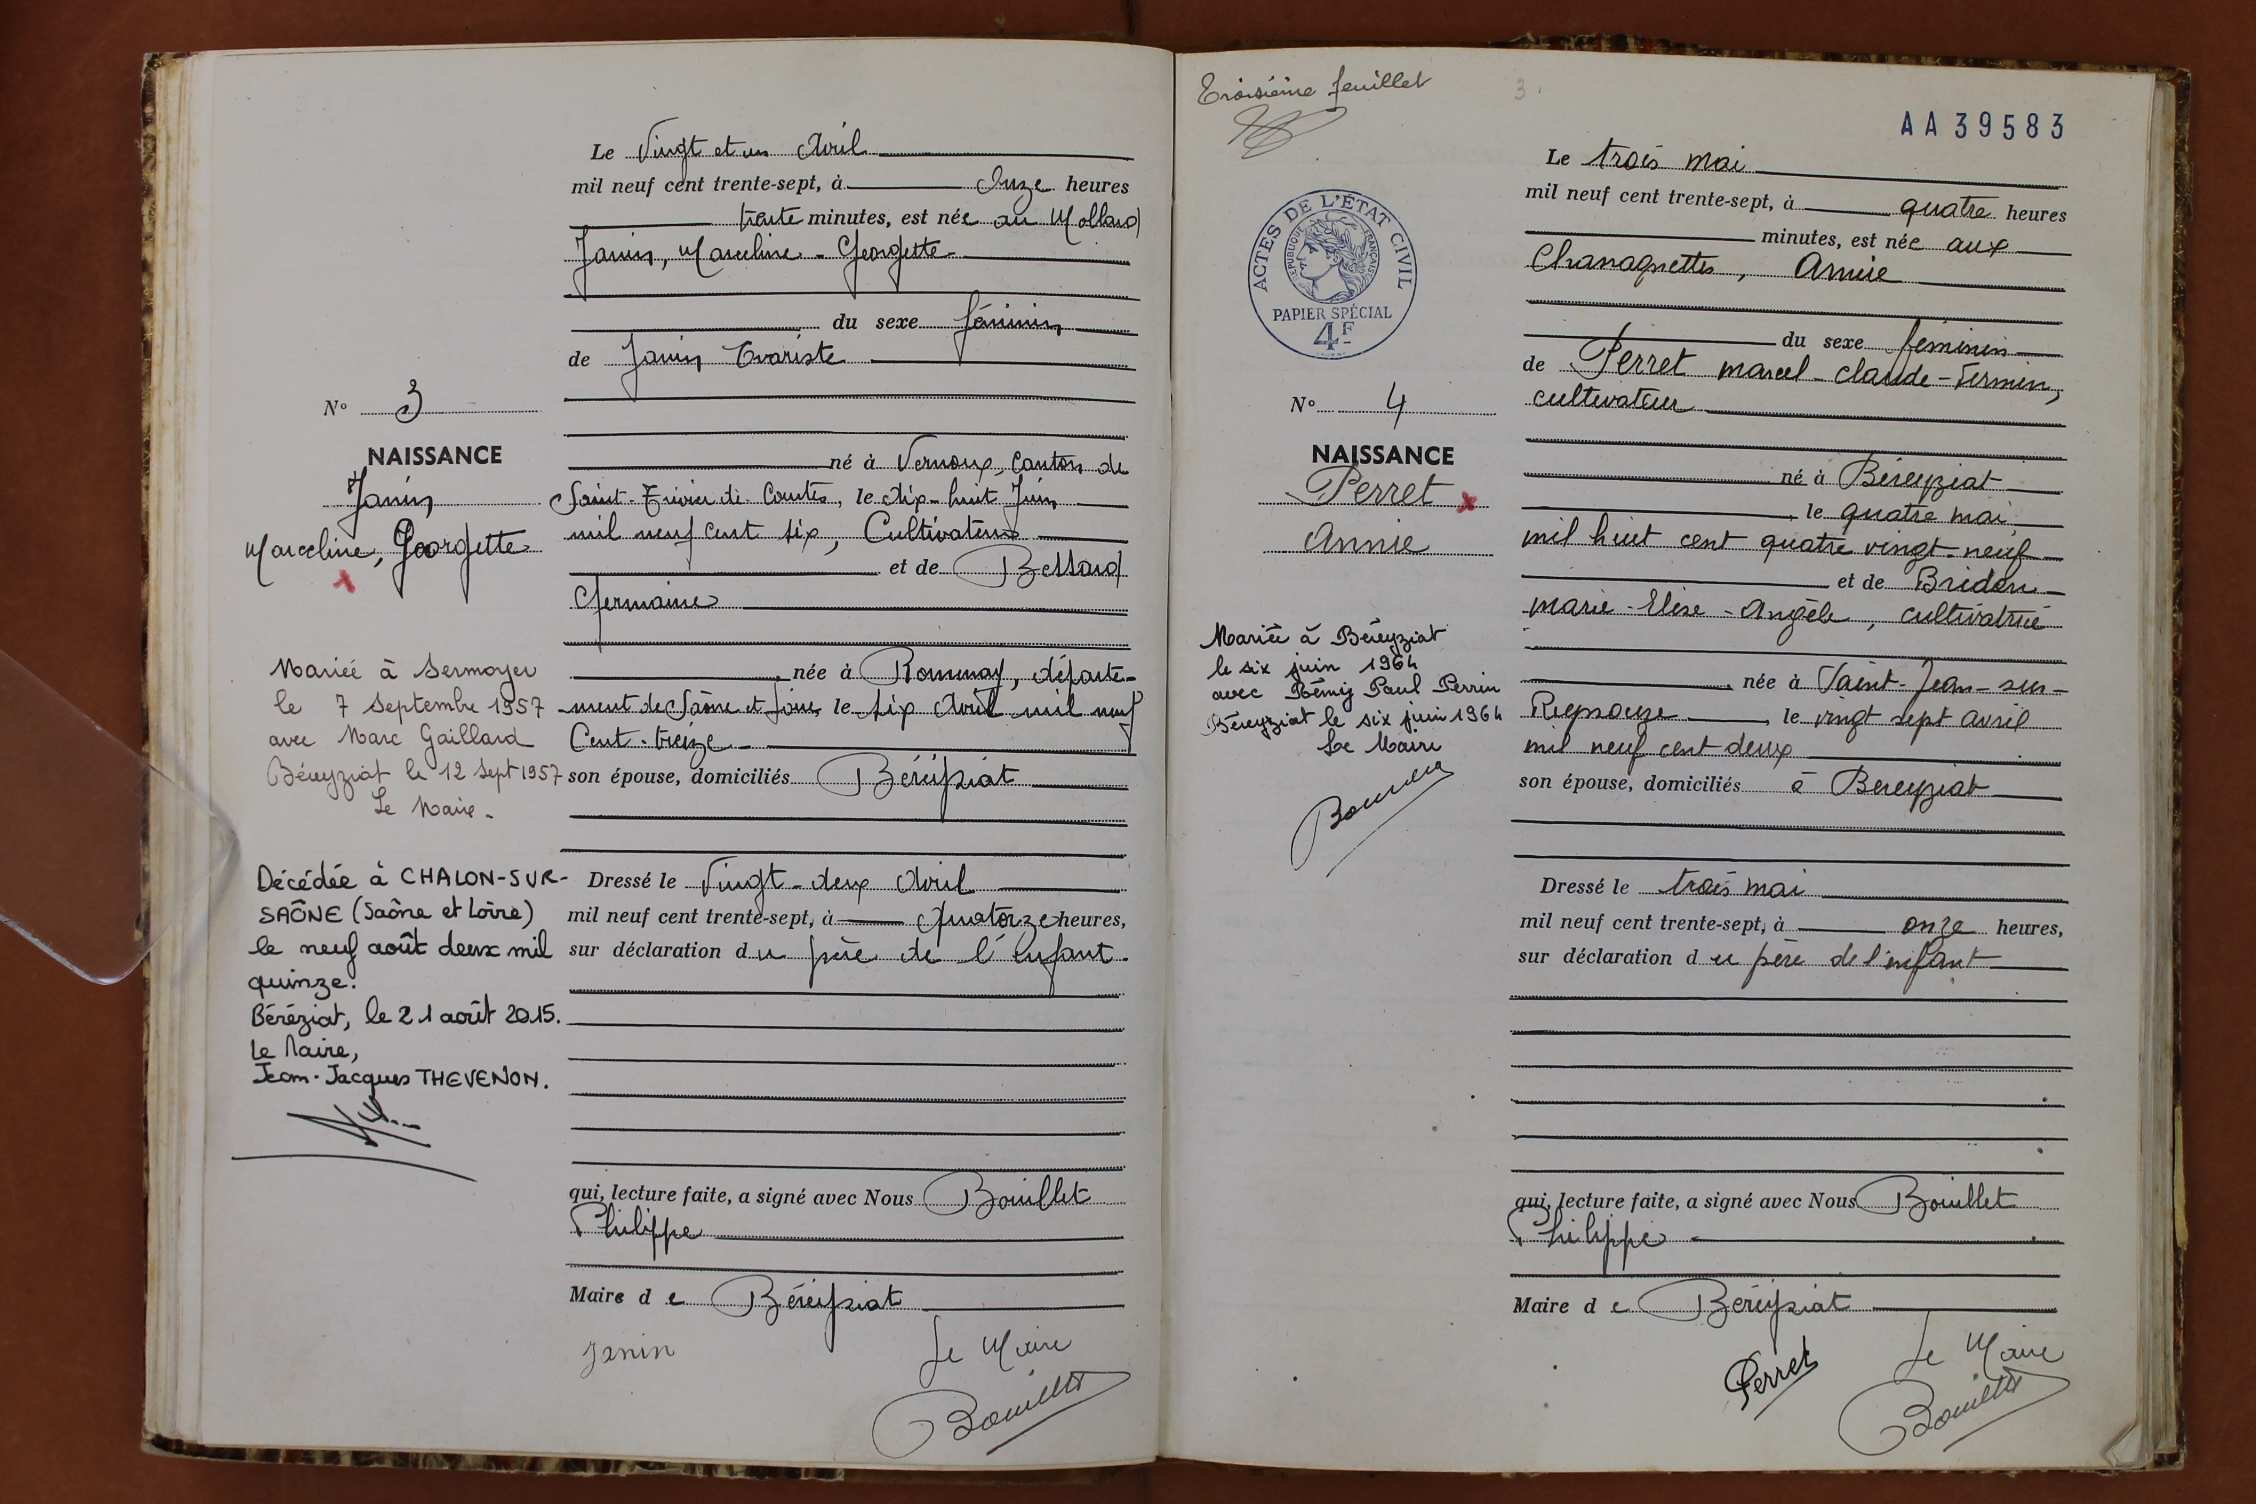 Le Vingt et un Avril
mil neuf cent trente-sept, à Onze heures
trente minutes, est née au Mollard
Janin, Marceline - Georgette -
du sexe féminin
de Janin Evariste
N° 3
NAISSANCE
Janin
Marceline, Georgette
né à Vernoux, Canton de
Saint-Trivier de Courtes, le dix-huit Juin
mil neuf cent six, Cultivateur
et de Bessard
Germaine
née à Romenay, départe-
ment de Saône et Loire, le six Avril mil neuf
Cent-treize -
son épouse, domiciliés Béréyziat
Mariée à Sermoyer
le 7 Septembre 1957
avec Marc Gaillard
Béreyziat le 12 Sept 1957
Le Maire -
Décédée à CHALON-SUR-
SAÔNE (Saône et Loire)
le neuf août deux mil
quinze.
Béréziat, le 21 août 2015.
Le Maire,
Jean-Jacques THEVENON.
Dressé le Vingt-deux Avril
mil neuf cent trente-sept, à Quatorze heures,
sur déclaration du père de l'enfant.
qui, lecture faite, a signé avec Nous Bouillet
Philippe
Maire de Béréyziat
Janin
Le Maire
Bouillet
Troisième feuillet
3
AA39583
ACTES DE L'ÉTAT CIVIL
RÉPUBLIQUE FRANÇAISE
PAPIER SPÉCIAL
4F
Le trois mai
mil neuf cent trente-sept, à quatre heures
minutes, est née aux
Chanaquettes, Annie
du sexe féminin
de Perret marcel-claude-Fermin,
cultivateur
N° 4
NAISSANCE
Perret
Annie
né à Béreyziat
, le quatre mai
mil huit cent quatre vingt-neuf
et de Bridon
marie-Elise-Angèle, cultivatrice
, née à Saint-Jean-sur-
Reyssouze, le vingt sept avril
mil neuf cent deux
son épouse, domiciliés à Bereyziat
Mariée à Béreyziat
le six juin 1964
avec Rémy Paul Perrin
Béreyziat le six juin 1964
Le Maire
Dressé le trois mai
mil neuf cent trente-sept, à onze heures,
sur déclaration du père de l'enfant
qui, lecture faite, a signé avec Nous Bouillet
Philippe
Maire de Béréyziat
Perret
Le Maire
Bouillet